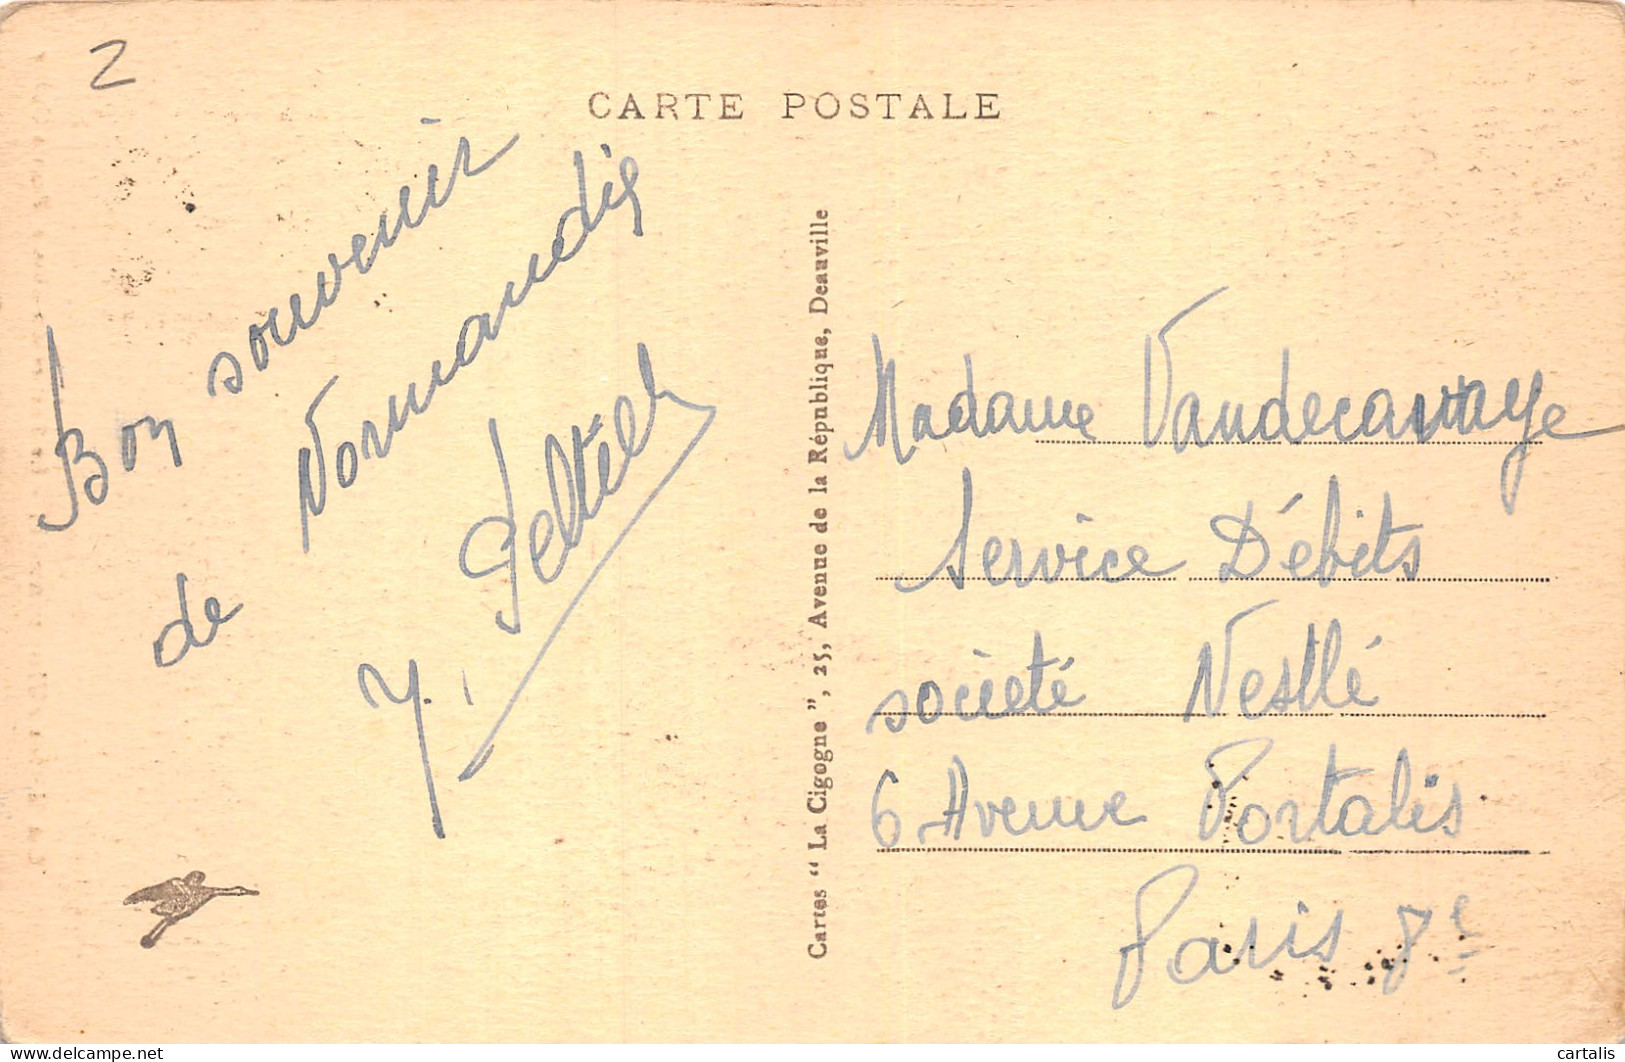 2
CARTE POSTALE
Bon souvenir
de Normandie
Y. Peltier
Cartes “ La Cigogne ”, 25, Avenue de la République, Deauville
Madame Vandecavaye
Service Débits
société Nestlé
6 Avenue Portalis
Paris 8e
delcampe.net
cartalis